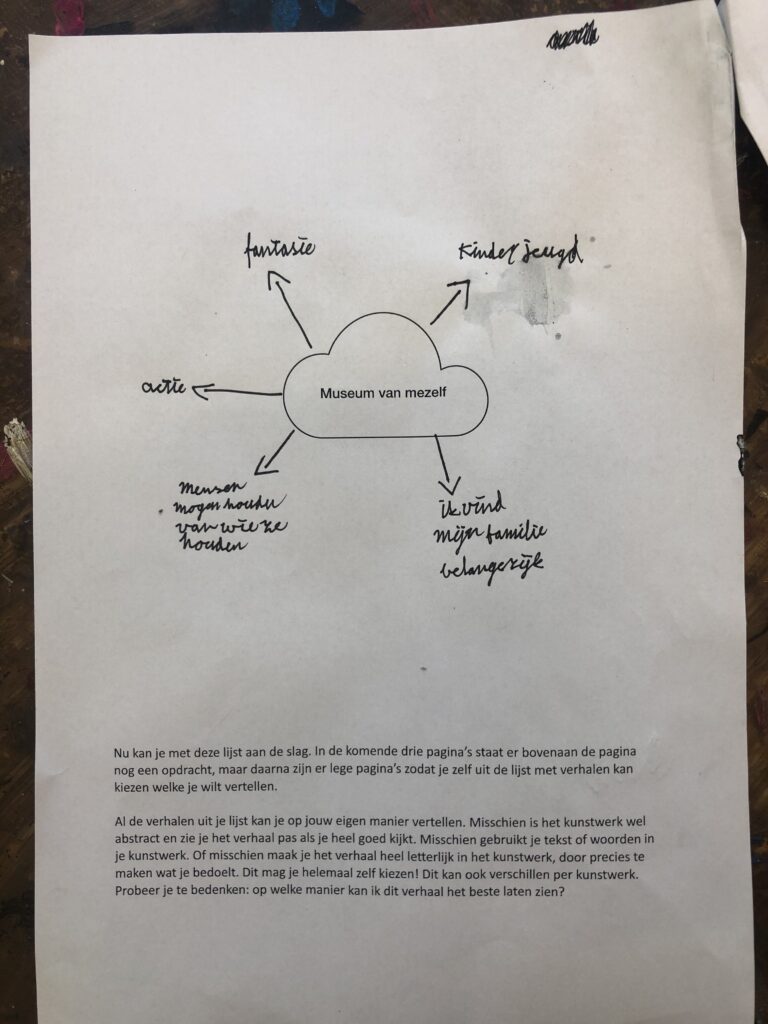 fantasie
kinder jeugd
Museum van mezelf
actie
mensen
mogen houden
van wie ze
houden
ik vind
mijn familie
belangerijk
Nu kan je met deze lijst aan de slag. In de komende drie pagina's staat er bovenaan de pagina
nog een opdracht, maar daarna zijn er lege pagina's zodat je zelf uit de lijst met verhalen kan
kiezen welke je wilt vertellen.
Al de verhalen uit je lijst kan je op jouw eigen manier vertellen. Misschien is het kunstwerk wel
abstract en zie je het verhaal pas als je heel goed kijkt. Misschien gebruikt je tekst of woorden in
je kunstwerk. Of misschien maak je het verhaal heel letterlijk in het kunstwerk, door precies te
maken wat je bedoelt. Dit mag je helemaal zelf kiezen! Dit kan ook verschillen per kunstwerk.
Probeer je te bedenken: op welke manier kan ik dit verhaal het beste laten zien?